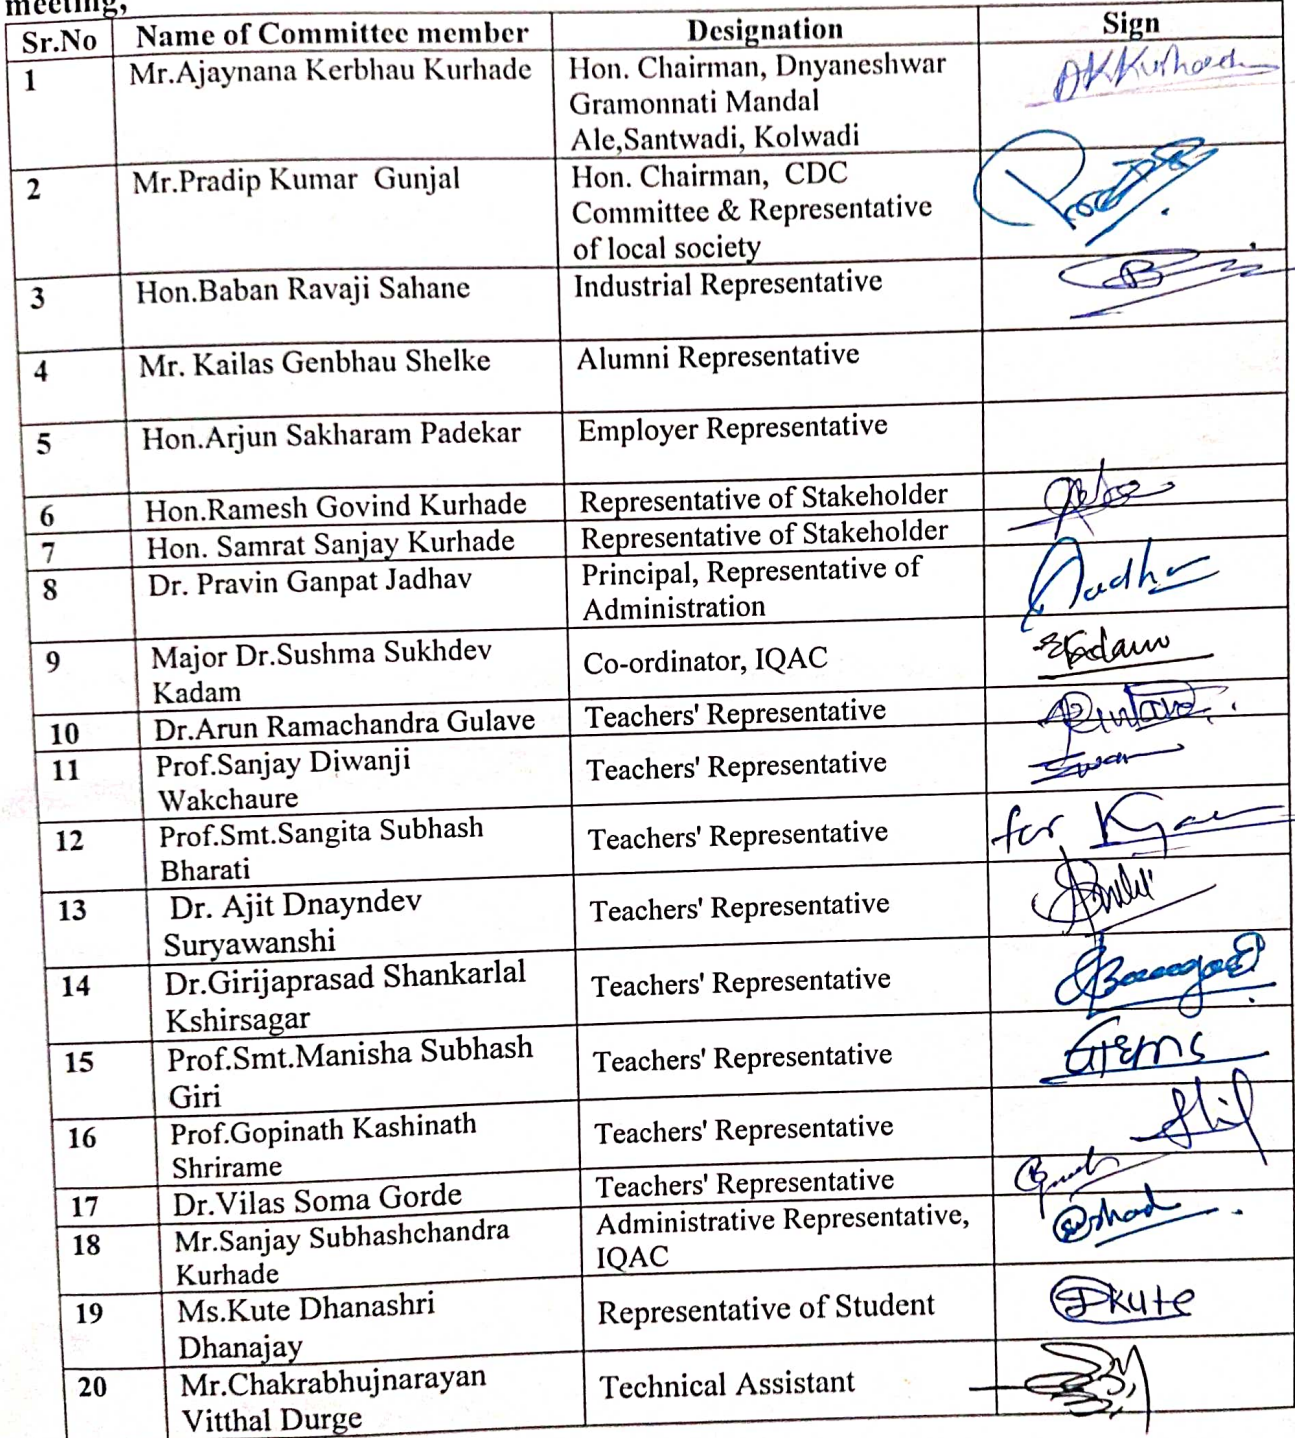 meeting,
Sr.No Name of Committee member Designation Sign
1 Mr.Ajaynana Kerbhau Kurhade Hon. Chairman, Dnyaneshwar
Gramonnati Mandal
Ale,Santwadi, Kolwadi
2 Mr.Pradip Kumar Gunjal Hon. Chairman, CDC
Committee & Representative
of local society
3 Hon.Baban Ravaji Sahane Industrial Representative
4 Mr. Kailas Genbhau Shelke Alumni Representative
5 Hon.Arjun Sakharam Padekar Employer Representative
6 Hon.Ramesh Govind Kurhade Representative of Stakeholder
7 Hon. Samrat Sanjay Kurhade Representative of Stakeholder
8 Dr. Pravin Ganpat Jadhav Principal, Representative of
Administration
9 Major Dr.Sushma Sukhdev Co-ordinator, IQAC
Kadam
10 Dr.Arun Ramachandra Gulave Teachers' Representative
11 Prof.Sanjay Diwanji Teachers' Representative
Wakchaure
12 Prof.Smt.Sangita Subhash Teachers' Representative for
Bharati
13 Dr. Ajit Dnayndev Teachers' Representative
Suryawanshi
14 Dr.Girijaprasad Shankarlal Teachers' Representative
Kshirsagar
15 Prof.Smt.Manisha Subhash Teachers' Representative
Giri
16 Prof.Gopinath Kashinath Teachers' Representative
Shrirame
17 Dr.Vilas Soma Gorde Teachers' Representative
18 Mr.Sanjay Subhashchandra Administrative Representative,
Kurhade IQAC
19 Ms.Kute Dhanashri Representative of Student Dkute
Dhanajay
20 Mr.Chakrabhujnarayan Technical Assistant
Vitthal Durge